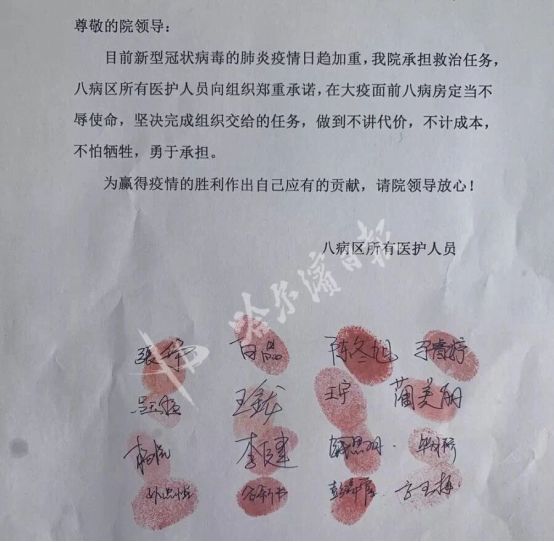 尊敬的院领导：
目前新型冠状病毒的肺炎疫情日趋加重，我院承担救治任务，
八病区所有医护人员向组织郑重承诺，在大疫面前八病房定当不
辱使命，坚决完成组织交给的任务，做到不讲代价，不计成本，
不怕牺牲，勇于承担。
为赢得疫情的胜利作出自己应有的贡献，请院领导放心！
八病区所有医护人员
哈尔滨日报
白晶 陈冬旭
王宁
李建